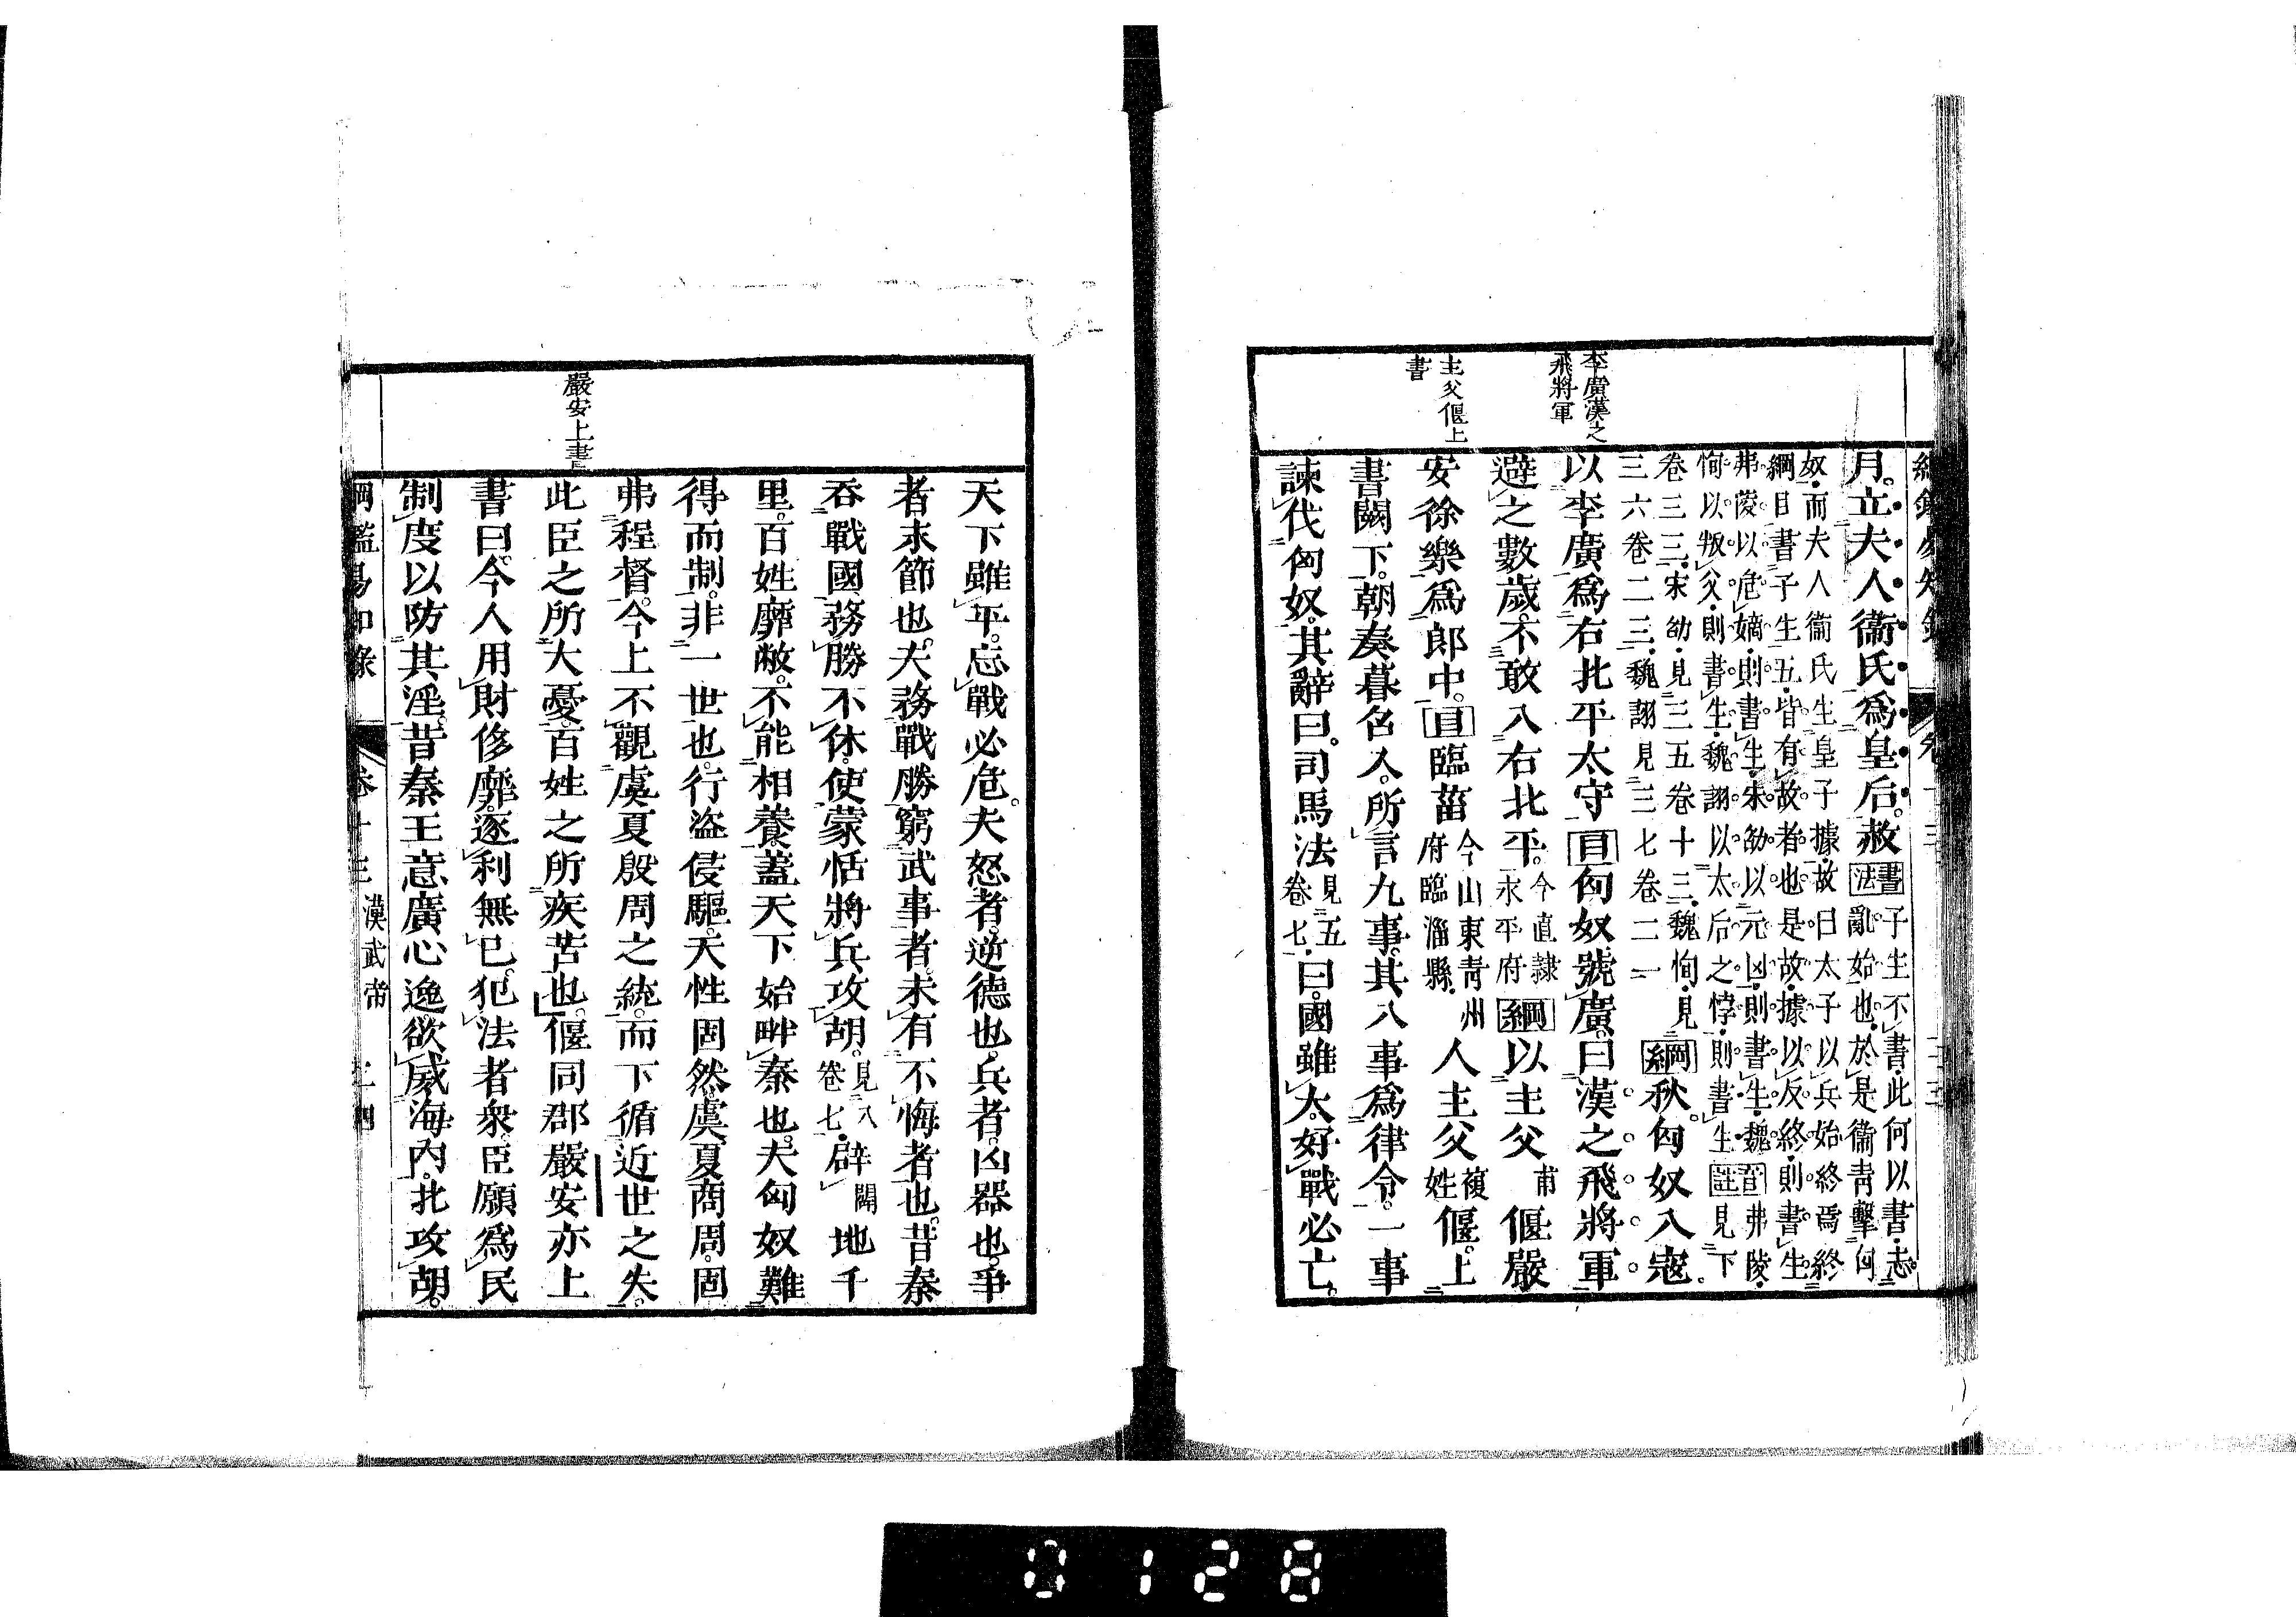 月。立夫人衞氏爲皇后。赦書法子生不書。此何以書。志亂始也。於是衞靑擊匈
奴。而夫人衞氏生皇子據。故曰太子以兵始終焉。終綱目書子生五。皆有故者也。是故據以反終。則書生。
弗陵以危嫡。則書生。宋劭以元凶。則書生。魏恂以叛父。則書生。魏詡以太后之悖。則書生。音註弗陵。見下
卷三三。宋劭。見三五卷十三。魏恂。見三六卷二三。魏詡見三七卷二一綱秋。匈奴入寇。
以李廣爲右北平太守目匈奴號廣。曰漢之飛將軍。
避之數歲。不敢入右北平。今直隷永平府綱以主父甫偃嚴
安徐樂爲郎中。目臨菑今山東靑州府臨淄縣。人主父複姓偃。上
書闕下。朝奏暮召入。所言九事。其八事爲律令。一事
諫伐匈奴。其辭曰。司馬法見五卷七。曰。國雖大。好戰必亡。
李廣漢之飛將軍
主父偃上書
天下雖平。忘戰必危。夫怒者。逆德也。兵者。凶器也。爭
者末節也。夫務戰勝。窮武事者。未有不悔者也。昔秦
吞戰國。務勝不休。使蒙恬將兵攻胡。見八卷七。辟闢地千
里。百姓靡敝。不能相養。蓋天下始畔秦也。夫匈奴難
得而制。非一世也。行盜侵驅。天性固然。虞夏商周。固
弗程督。今上不觀虞夏殷周之統。而下循近世之失。
此臣之所大憂。百姓之所疾苦也。偃同郡嚴安亦上
書曰。今人用財侈靡。逐利無已。犯法者衆。臣願爲民
制度以防其淫。昔秦王意廣心逸。欲威海內。北攻胡。
嚴安上書
綱鑑易知錄 卷十三 漢武帝
0128